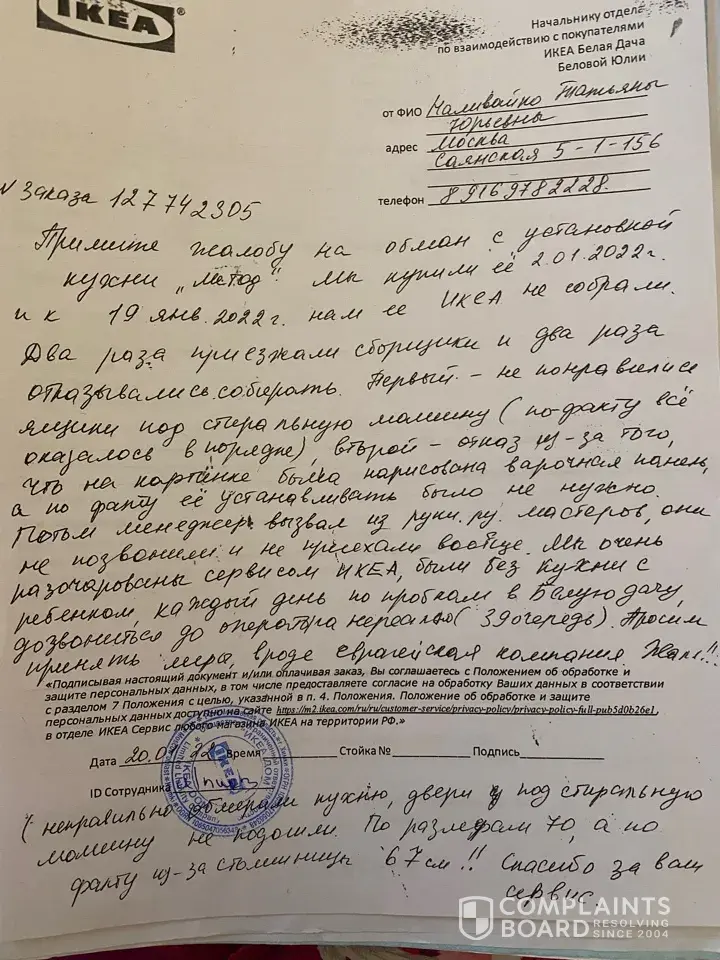 IKEA
Начальнику отдела
по взаимодействию с покупателями
ИКЕА Белая Дача
Беловой Юлии
от ФИО Наливайко Татьяны
Юрьевны
адрес Москва
Саянская 5-1-156
телефон 89169782228.
N заказа 127742305
Примите жалобу на обман с установкой
кухни „Метод". Мы купили её 2.01.2022г.
и к 19 янв. 2022г. нам ее ИКЕА не собрали.
Два раза приезжали сборщики и два раза
отказывались собирать. Первый - не понравились
ящики под стиральную машину (по факту всё
оказалось в порядке), второй - отказ из-за того,
что на картинке была нарисована варочная панель,
а по факту её устанавливать было не нужно.
Потом менеджер вызвал из руки.ру. мастеров, они
не позвонили и не приехали вообще. Мы очень
разочарованы сервисом ИКЕА, были без кухни с
ребенком, каждый день по пробкам в Белую дачу,
дозвониться до оператора нереально (39 очередь). Просим
принять меры, вроде европейская компания.
«Подписывая настоящий документ и/или оплачивая заказ, Вы соглашаетесь с Положением об обработке и
защите персональных данных, в том числе предоставляете согласие на обработку Ваших данных в соответствии
с разделом 7 Положения с целью, указанной в п. 4. Положения. Положение об обработке и защите
персональных данных доступно на сайте https://m2.ikea.com/ru/ru/customer-service/privacy-policy/privacy-policy-full-pub5d0b26e1,
в отделе ИКЕА Сервис любого магазина ИКЕА на территории РФ.»
Дата 20.0 Время Стойка № Подпись
ID Сотрудника
(неправильно обмеряли кухню, двери под стиральную
машину не подошли. По размерам 70, а по
факту из-за столешницы 67 см!! Спасибо за ваш
сервис.
COMPLAINTS
BOARD RESOLVING
SINCE 2004